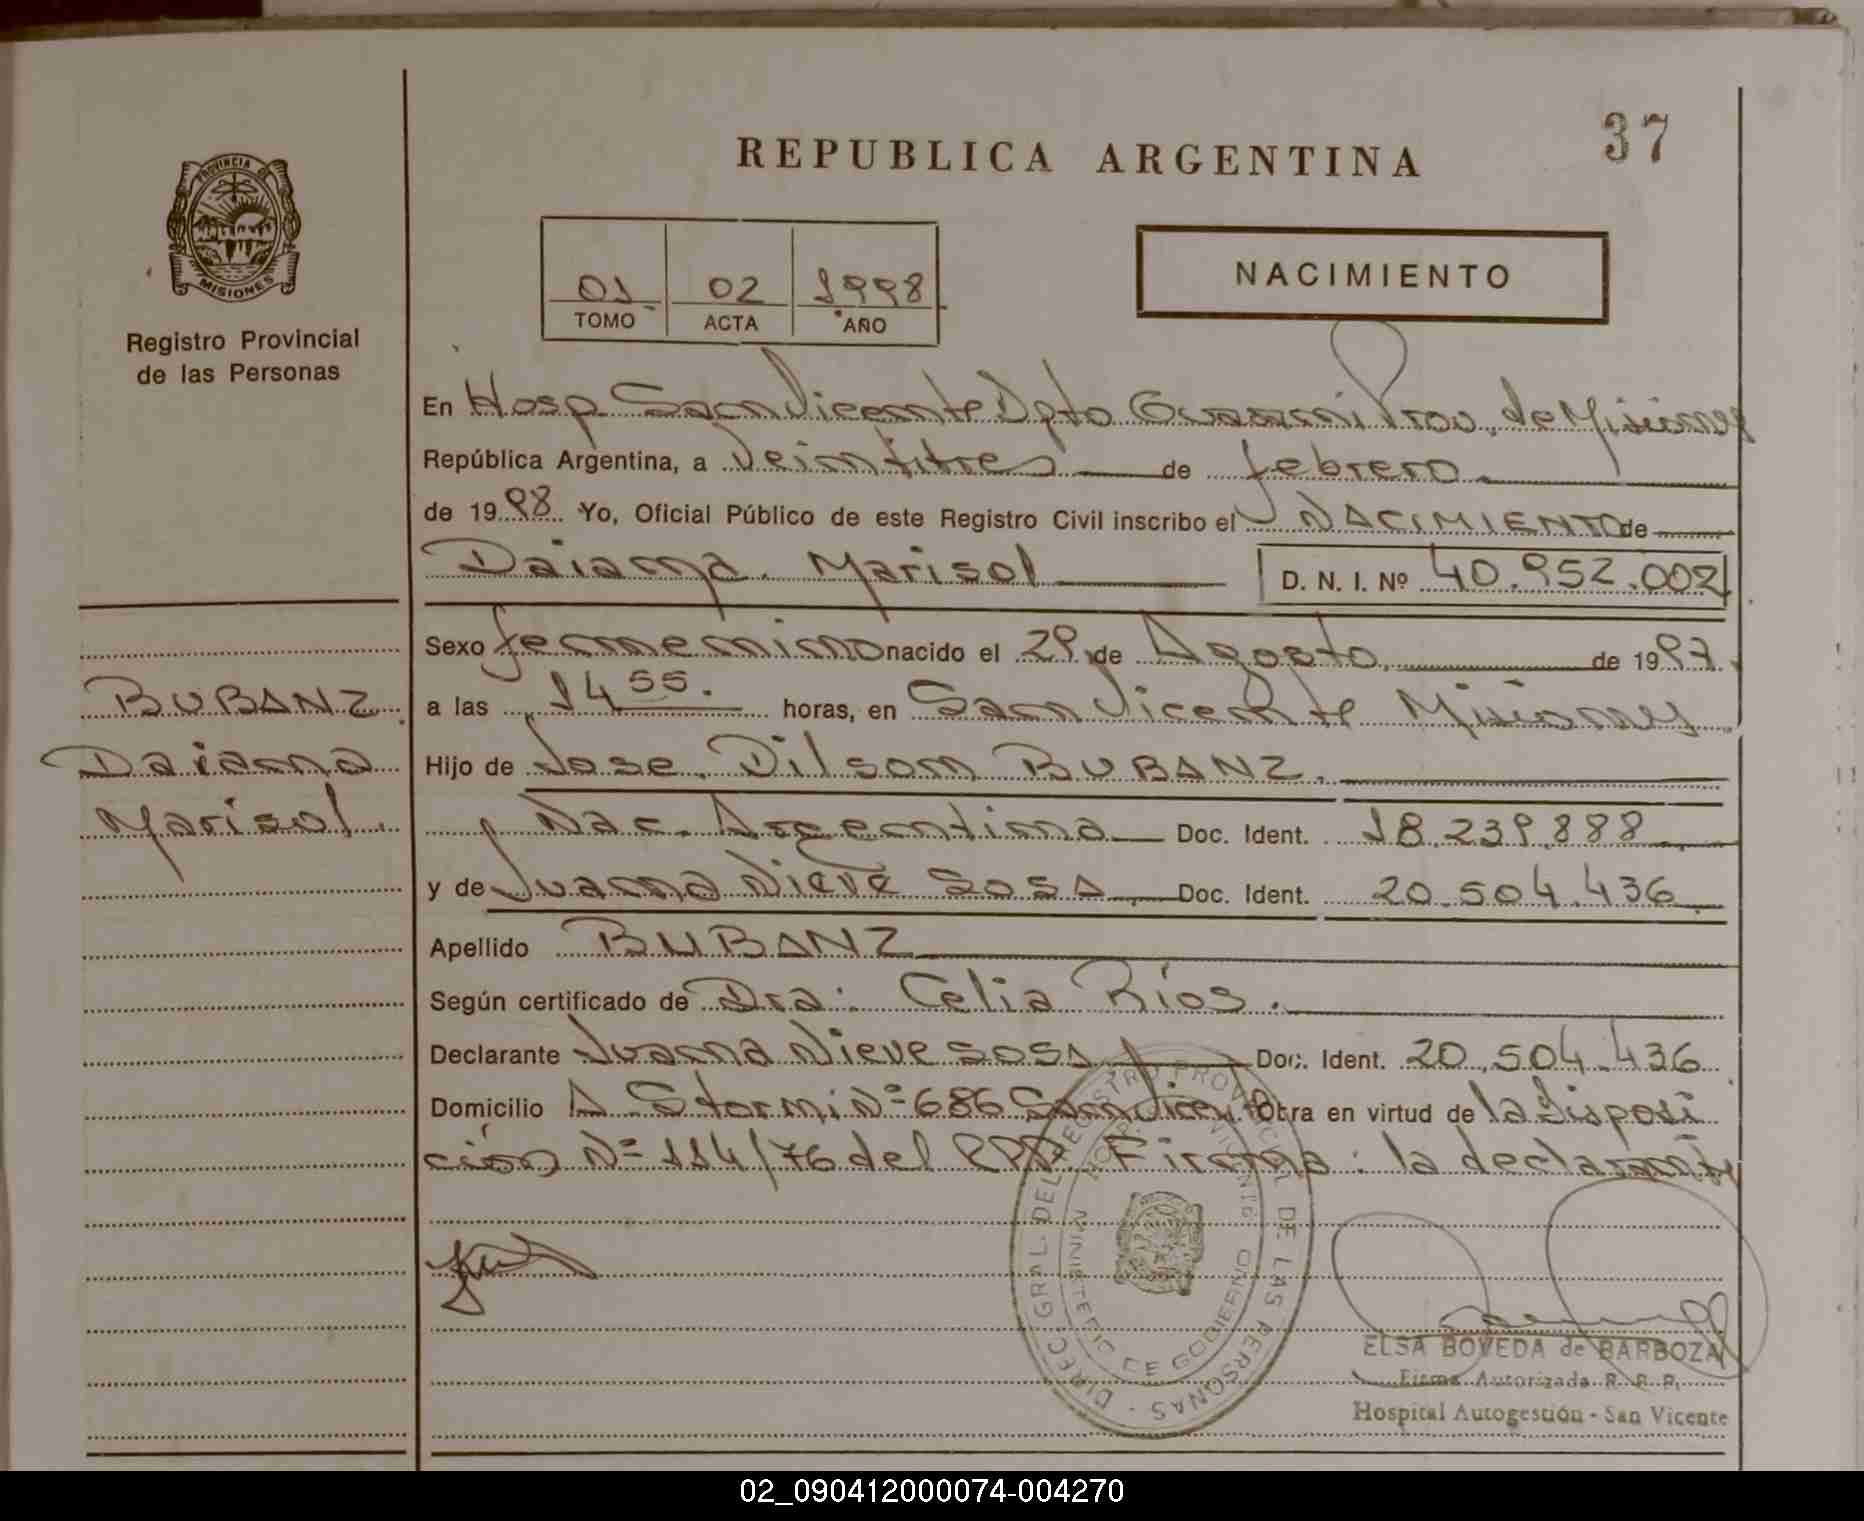 37
REPUBLICA ARGENTINA
PROVINCIA DE
MISIONES
Registro Provincial
de las Personas
01 02 1998
TOMO ACTA AÑO
NACIMIENTO
En Hosp San Vicente Dpto Guarani Prov. de Misiones
República Argentina, a veintitres de febrero
de 1998 Yo, Oficial Público de este Registro Civil inscribo el NACIMIENTO de
Daiana Marisol D. N. I. Nº 40.952.002
Sexo femenino nacido el 29 de Agosto de 1997
a las 14 55. horas, en San Vicente Misiones
Hijo de Jose Dilson BUBANZ
Nac. Argentina Doc. Ident. 18.239.888
y de Juana Nieve SOSA Doc. Ident. 20.504.436
Apellido BUBANZ
Según certificado de Dra: Celia Rios.
Declarante Juana Nieve SOSA Doc. Ident. 20.504.436
Domicilio A Storni Nº 686 San Vicente Obra en virtud de la disposi
ción Nº 114/76 del RPP. Firma: la declarante
BUBANZ
Daiana
Marisol.
DIREC. GRAL. DEL REGISTRO PROVINCIAL DE LAS PERSONAS
MINISTERIO DE GOBIERNO
ELSA BOVEDA de BARBOZA
Firma Autorizada R. P. P.
Hospital Autogestión - San Vicente
02_090412000074-004270